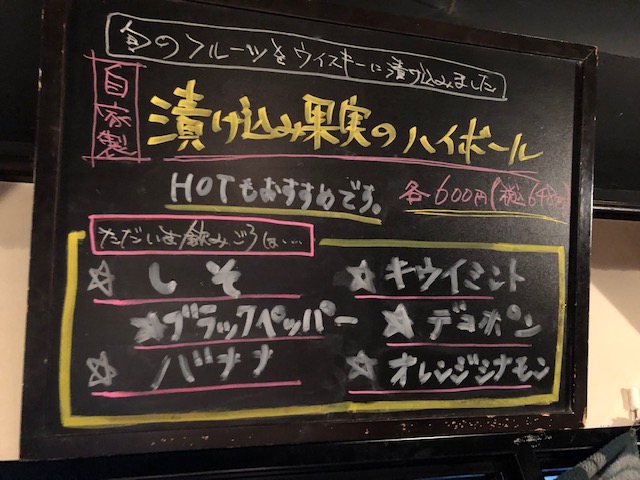 旬のフルーツをウイスキーに漬け込みました
自家製
漬け込み果実のハイボール
HOTもおすすめです。
各600円(税込648円)
ただいま飲みごろは…
☆しそ
☆キウイミント
☆ブラックペッパー
☆デコポン
☆バナナ
☆オレンジシナモン